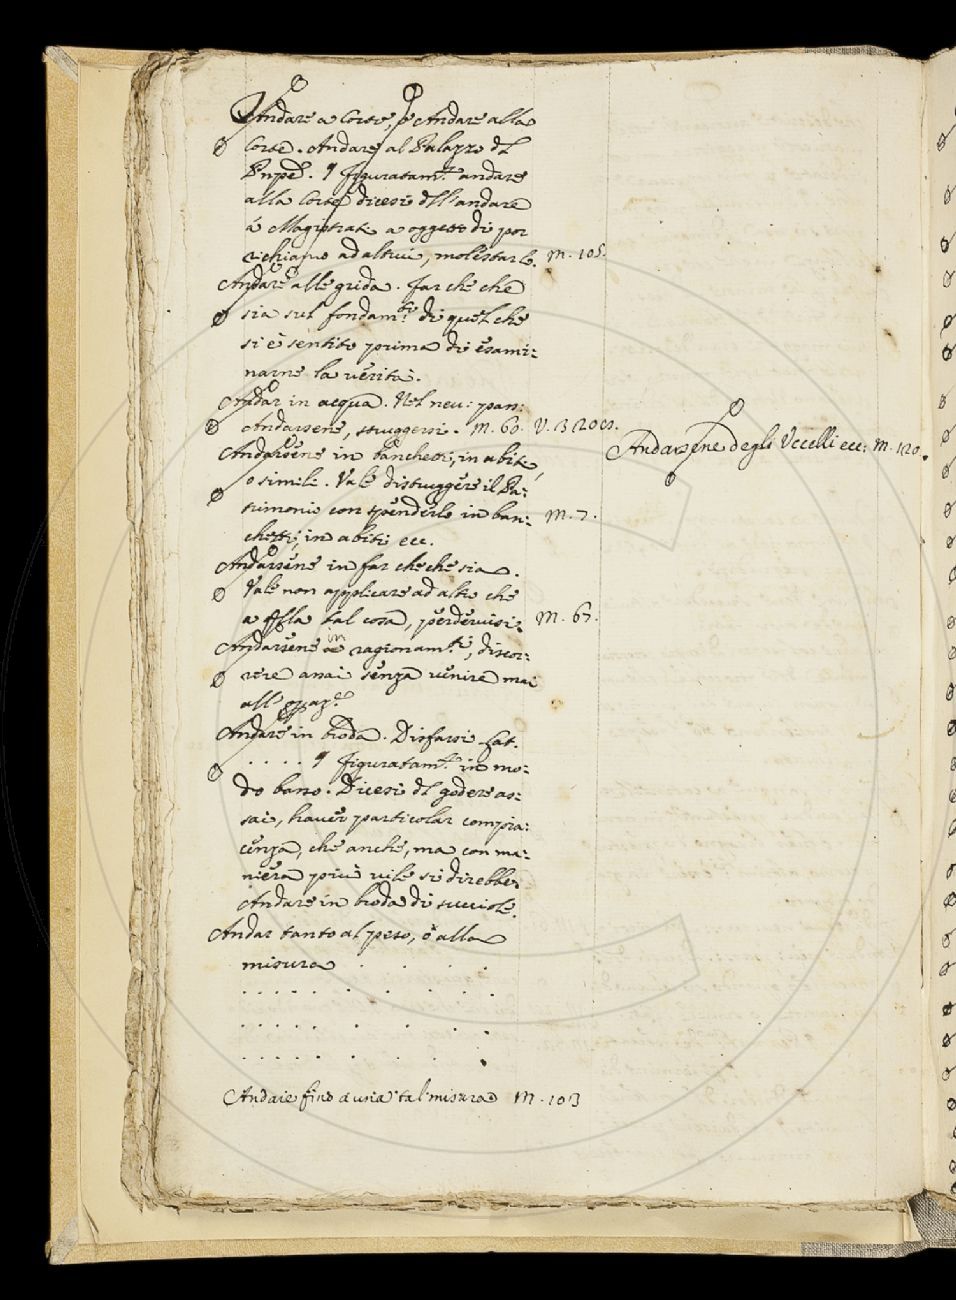 Andare a Corte, o Andare alla
Corte. Andare al Palazzo dl
Pnpe. ¶ figuratam.te andare
alla Corte dicesi dll'andare
a' Magistrati a oggetto di por
richiamo ad altrui, molestarlo. M. 105.
Andare alle grida. far che che
sia sul fondam.to di quel che
si è sentito prima di esami:
narne la verità.
Andar in acqua. Nel neu: pass:
Andarsene, struggersi. M. 60. V.
Andarsene in banchetti, in abiti,
o simili. Vale distruggere il Pa:
trimonio con spenderlo in ban: M. 7.
chetti, in abiti ecc.
Andarsene in far che che sia.
Vale non applicare ad altro che
a qlla tal cosa, perdervisi. M. 67.
Andarsene in ragionam.ti, discor:
rere assai senza venire mai
all'
Andare in broda. Disfarsi. Lat.
. . . . ¶ figuratam.te in mo:
do basso. Dicesi dl godere as:
sai, haver particolar compia:
cenza, che anche, ma con ma:
niera più vile si direbbe
Andare in broda di succiole.
Andar tanto al peso, o alla
misura . . . .
. . . . . . . . .
. . . . . . . . .
. . . . . . . . .
Andare fino a una tal misura M. 103
Andarsene degli Uccelli ecc: M. 120.